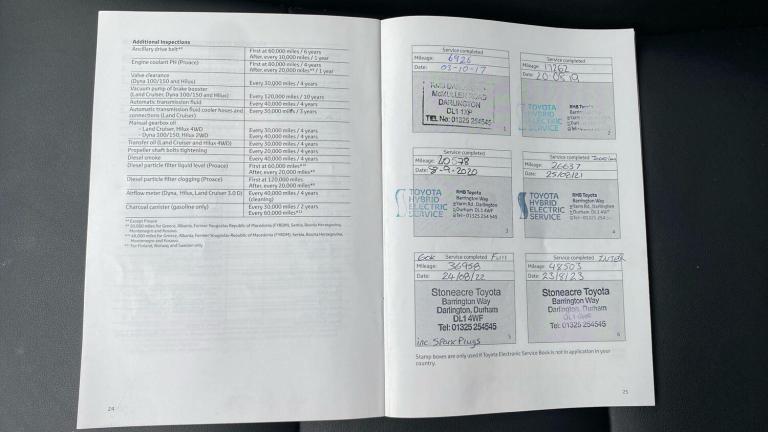 Additional Inspections
Ancillary drive belt First at 60,000 miles / 6 years
After, every 10,000 miles / 1 year
Engine coolant PH (Proace) First at 80,000 miles / 4 years
After, every 20,000 miles / 1 year
Valve clearance
(Dyna 100/150 and Hilux) Every 30,000 miles / 4 years
Vacuum pump of brake booster
(Land Cruiser, Dyna 100/150 and Hilux) Every 120,000 miles / 10 years
Automatic transmission fluid Every 40,000 miles / 4 years
Automatic transmission fluid cooler hoses and Every 30,000 miles / 3 years
connections (Land Cruiser)
Manual gearbox oil
- Land Cruiser, Hilux 4WD Every 30,000 miles / 4 years
- Dyna 100/150, Hilux 2WD Every 40,000 miles / 4 years
Transfer oil (Land Cruiser and Hilux 4WD) Every 30,000 miles / 4 years
Propeller shaft bolts tightening Every 20,000 miles / 2 years
Diesel smoke Every 40,000 miles / 4 years
Diesel particle filter liquid level (Proace) First at 60,000 miles
After, every 20,000 miles
Diesel particle filter clogging (Proace) First at 120,000 miles
After, every 20,000 miles
Airflow meter (Dyna, Hilux, Land Cruiser 3.0 D) Every 40,000 miles / 4 years
(cleaning)
Charcoal canister (gasoline only) Every 30,000 miles / 2 years
Every 60,000 miles
Except Proace
Montenegro and Kosovo
For Finland, Norway and Sweden only
24
Service completed
Mileage: 6926
Date: 03-10-17
DARLINGTON
DL1 1XP
TEL No: 01325 254545
1
Service completed
Mileage:
Date:
TOYOTA
HYBRID
ELECTRIC
SERVICE
RMB Toyota
2
Service completed
Mileage: 20598
Date: 8-9-2020
TOYOTA
HYBRID
ELECTRIC
SERVICE
RMB Toyota
Barrington Way
Yarm Rd, Darlington
Durham DL1 4WF
Tel - 01325 254 545
3
Service completed
Mileage: 26637
Date: 25/08/21
TOYOTA
HYBRID
ELECTRIC
SERVICE
RMB Toyota
Barrington Way
Yarm Rd, Darlington
Durham DL1 4WF
4
60k Service completed Full
Mileage: 36958
Date: 24/08/22
Stoneacre Toyota
Barrington Way
Darlington, Durham
DL1 4WF
Tel: 01325 254545
5
inc Spark Plugs
Service completed INTER
Mileage: 48503
Date: 23/8/23
Stoneacre Toyota
Barrington Way
Darlington, Durham
DL1 4WF
Tel: 01325 254545
6
Stamp boxes are only used if Toyota Electronic Service Book is not in application in your
country.
25